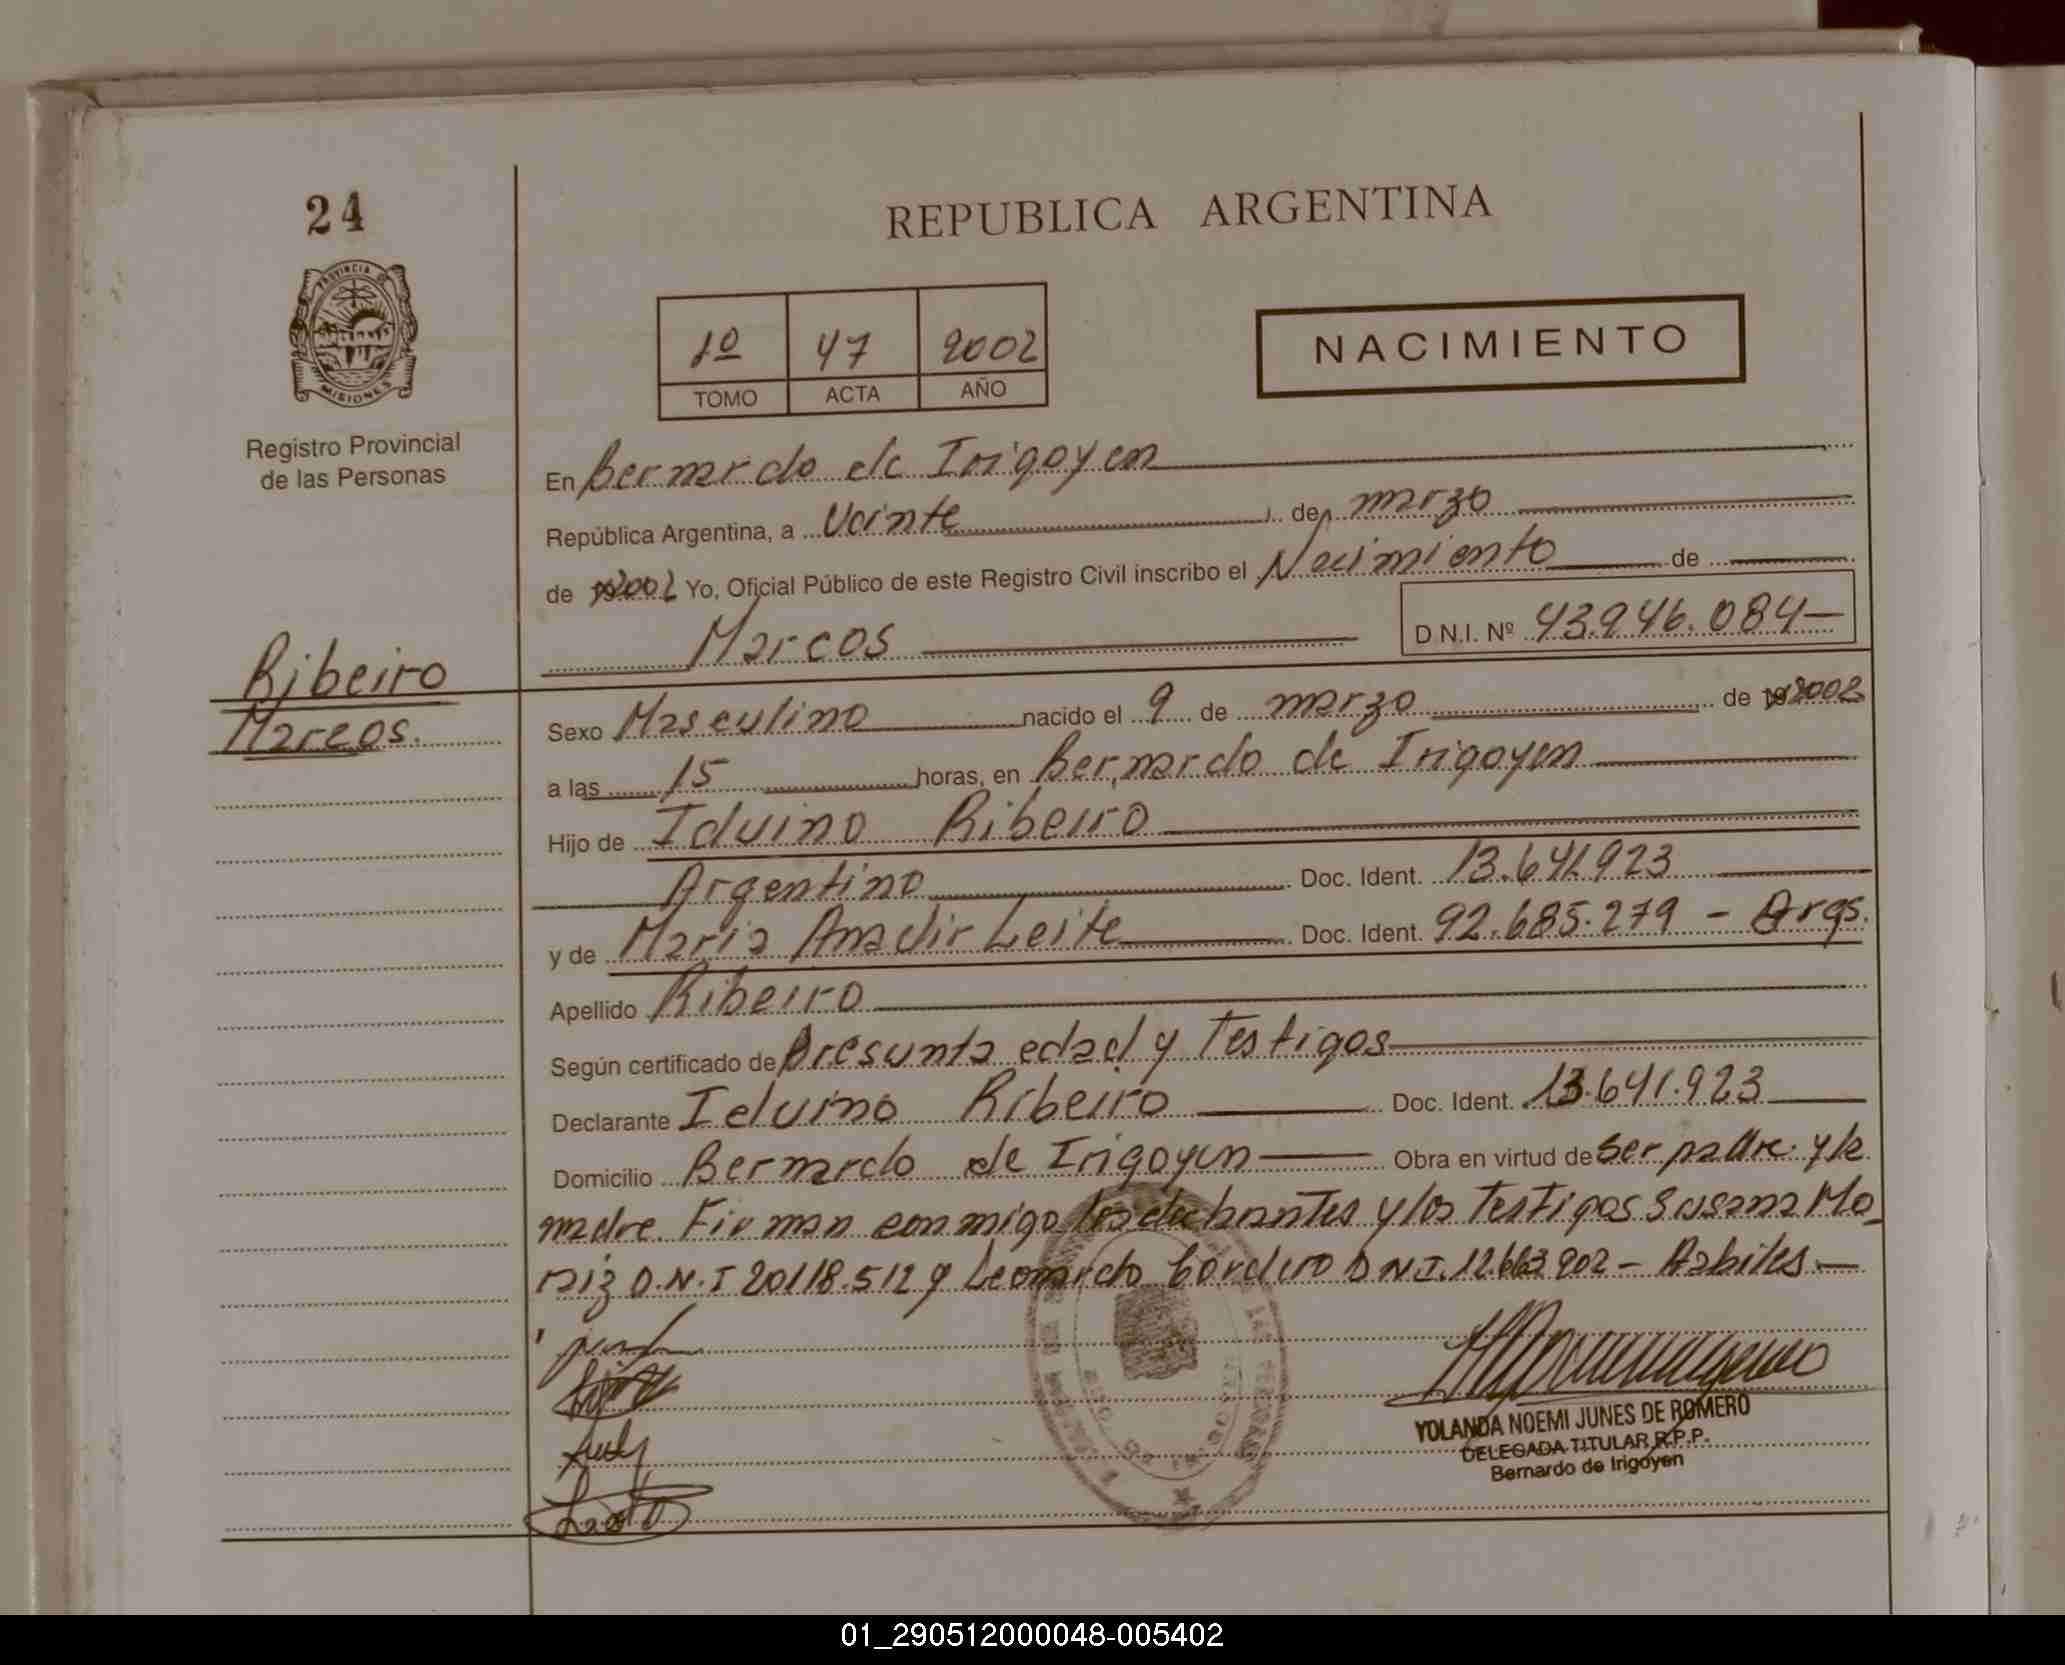 24
REPUBLICA ARGENTINA
PROVINCIA DE
MISIONES
Registro Provincial
de las Personas
1º 47 2002
TOMO ACTA AÑO
NACIMIENTO
En Bernardo de Irigoyen
República Argentina, a Veinte de marzo
de 2002 Yo, Oficial Público de este Registro Civil inscribo el Nacimiento de
Marcos D N.I. Nº 43.946.084
Ribeiro
Marcos.
Sexo Masculino nacido el 9 de marzo de 2002
a las 15 horas, en Bernardo de Irigoyen
Hijo de Iduino Ribeiro
Argentino Doc. Ident. 13.641.923
y de Maria Anadir Leite Doc. Ident. 92.685.279 - Args.
Apellido Ribeiro
Según certificado de Presunta edad y Testigos
Declarante Iduino Ribeiro Doc. Ident. 13.641.923
Domicilio Bernardo de Irigoyen Obra en virtud de ser padre y la
madre. Firman conmigo los declarantes y los Testigos Susana Mo
riz D.N.I 20118.512 y Leonardo Cordero D N.I. 12.663.902 -
YOLANDA NOEMI JUNES DE ROMERO
DELEGADA TITULAR R.P.P.
Bernardo de Irigoyen
01_290512000048-005402